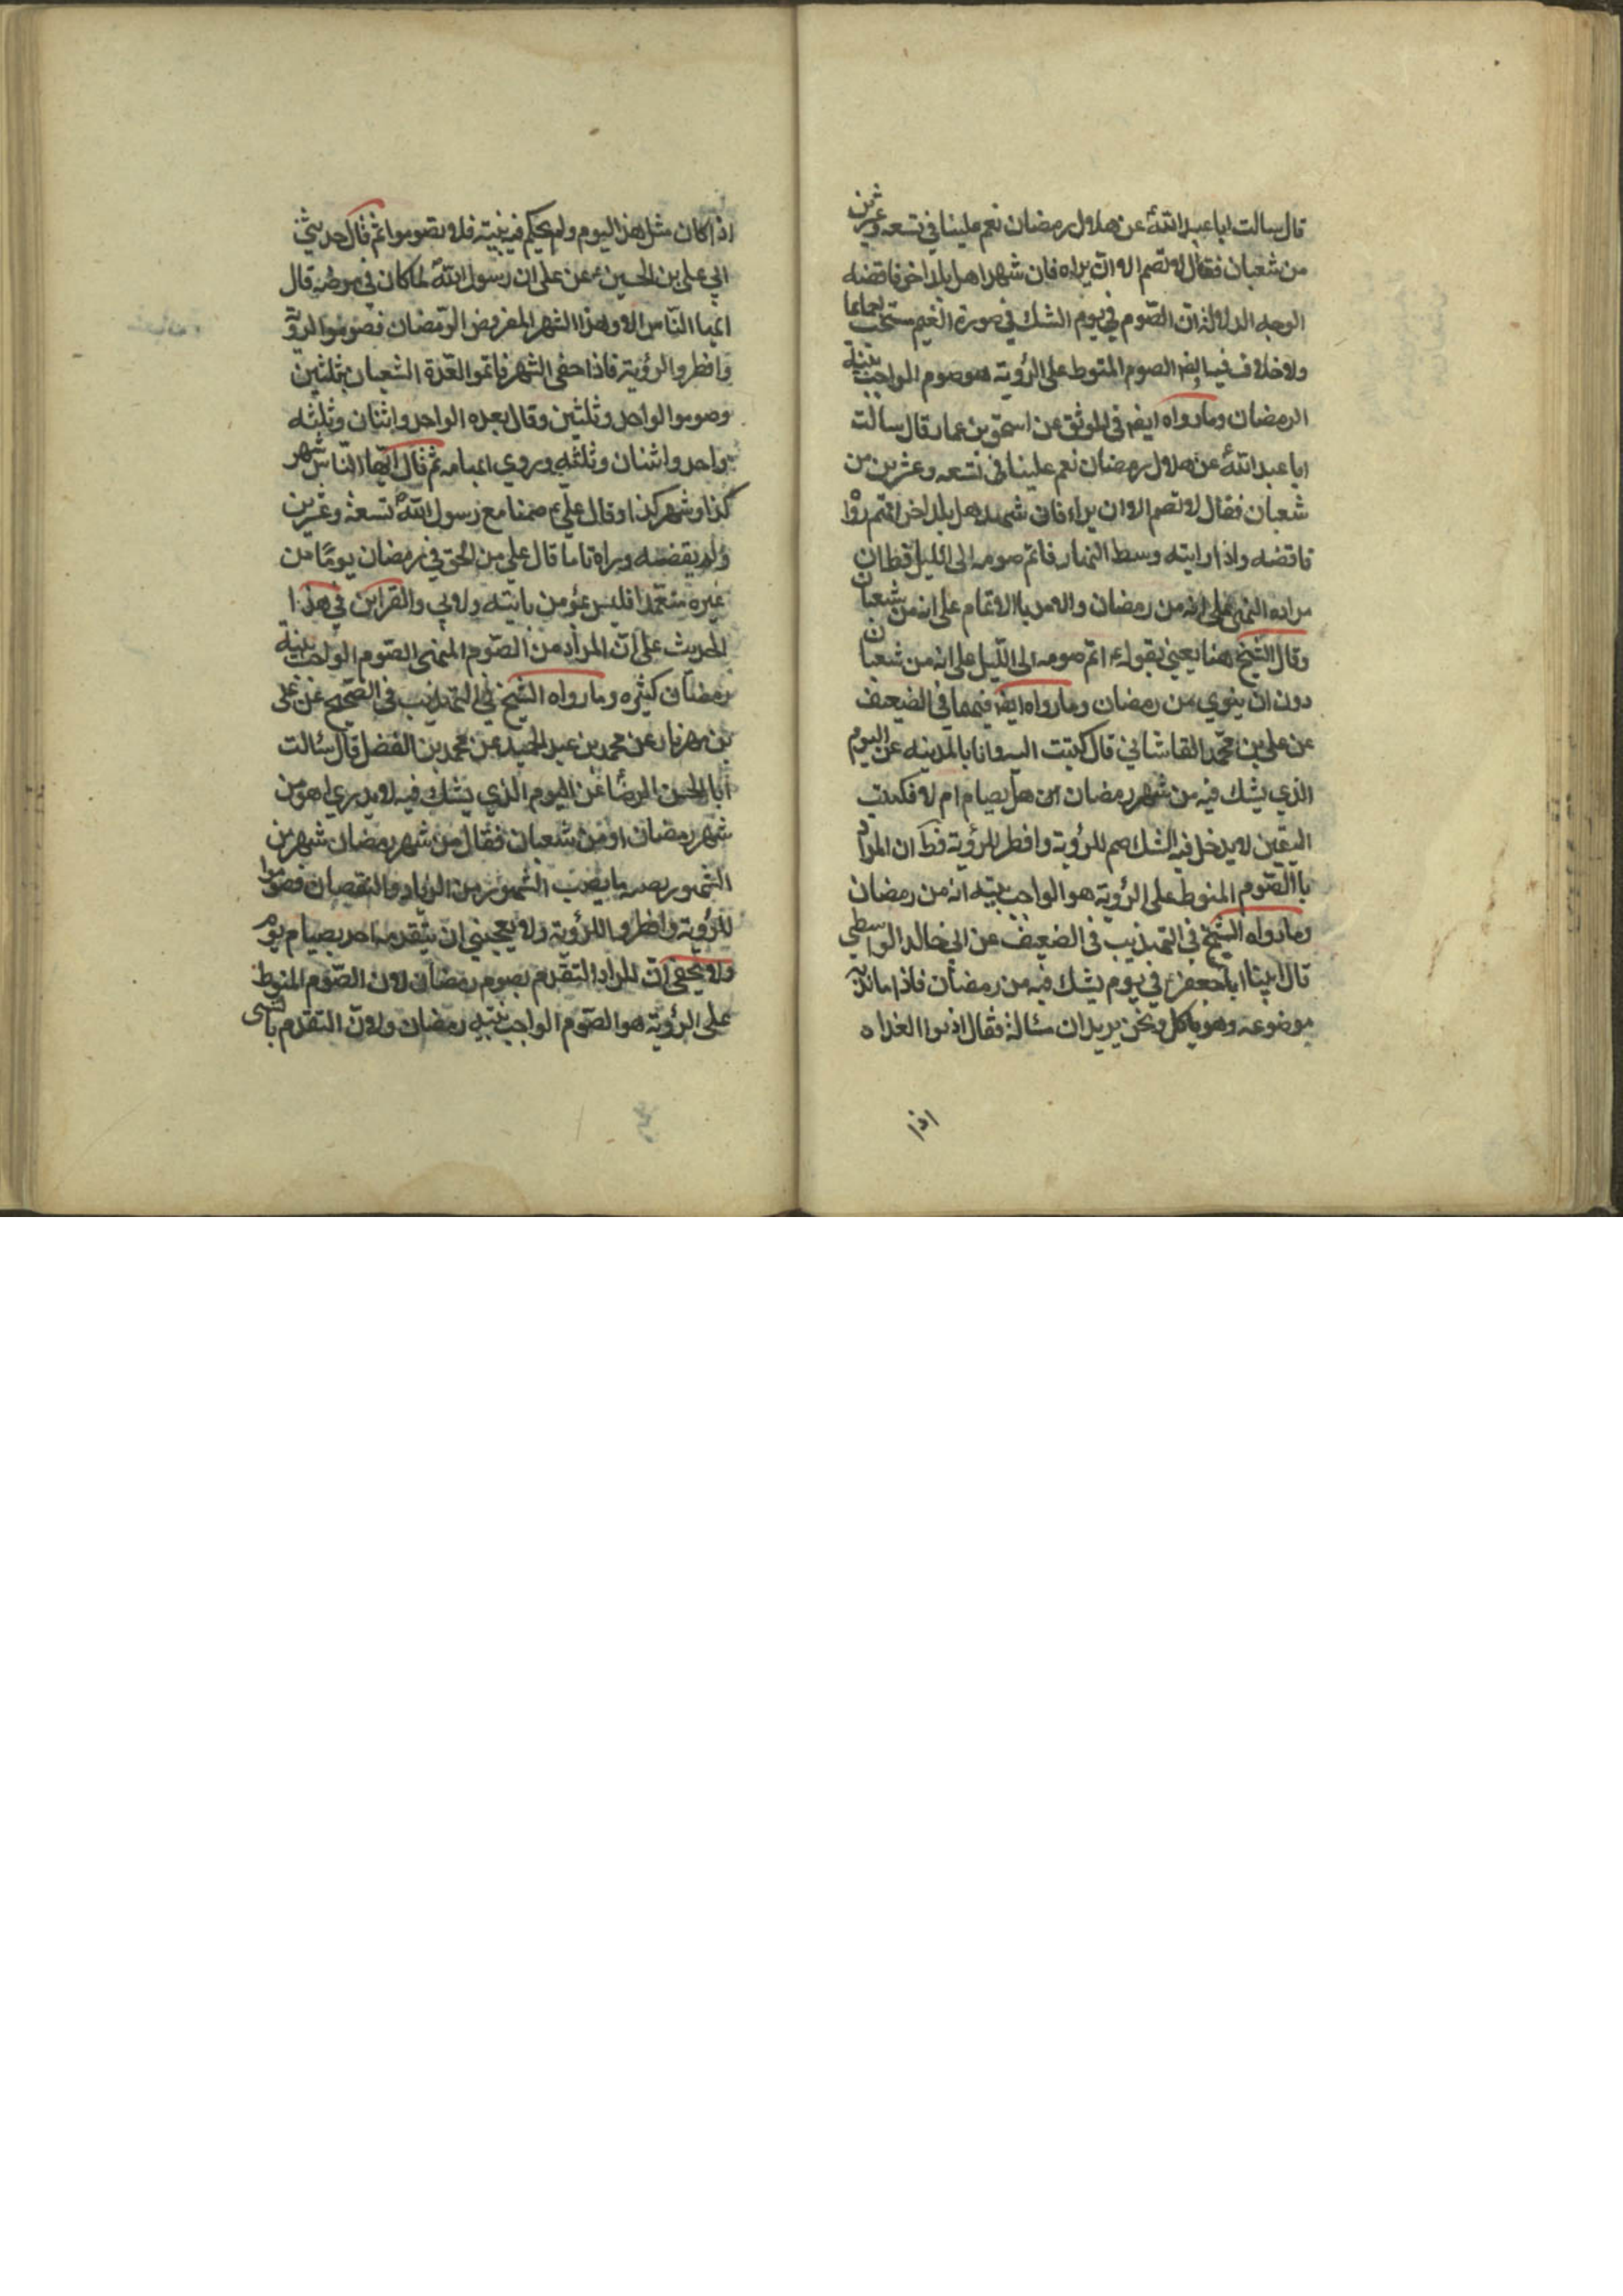 قال سالت ابا عبد الله عن هلال رمضان نعم علينا في تسعه وعشرين
من شعبان فقال لا تصم الا ان يراه فان شهد اهل بلد اخر فاقضه
الوجه الدلالة ان الصوم في يوم الشك في صورة الغيم مستحب اجماعا
ولا خلاف فيه ايض الصوم المنوط على الرؤية هو صوم الواجب بنية
الرمضان وما رواه ايض في الموثق عن اسحق بن عمار قال سالت
ابا عبد الله عن هلال رمضان نعم علينا في تسعه وعشرين من
شعبان فقال لا تصم الا ان يراه فان شهد اهل بلد اخر انهم راوا
فاقضه واذا رايته وسط النهار فاتم صومه الى الليل فظ ان
مراده النهي على انه من رمضان والامر بالاتمام على انه من شعبان
وقال الشيخ هنا يعني بقوله ع اتم صومه الى الليل على انه من شعبان
دون ان ينوي من رمضان وما رواه ايض فيهما في الضعيف
عن علي بن محمد القاشاني قال كتبت اليه وانا بالمدينه عن اليوم
الذي يشك فيه من شهر رمضان هل يصام ام لا فكتب
اليقين لا يدخل فيه الشك صم للرؤية وافطر للرؤية فظ ان المراد
باالصوم المنوط على الرؤية هو الواجب بنيه انه من رمضان
وما رواه الشيخ في التهذيب في الضعيف عن ابي خالد الواسطي
قال اتينا ابا جعفر ع في يوم يشك فيه من رمضان فاذا مائدته
موضوعه وهو ياكل ونحن يريد ان نساله فقال ادنوا الغداه
اذا
اذا كان مثل هذا اليوم ولم يحكم فيه بنيته فلا تصوموا ثم قال حدثني
ابي علي بن الحسين ع عن علي ان رسول الله لما كان في مرضه قال
ايها الناس الا وهذا الشهر المفروض الرمضان فصوموا لرؤيته
وافطروا لرؤيته فاذا خفى الشهر فاتموا العدة الشعبان بثلثين
وصوموا الواحد وثلثين وقال بعده الواحد واثنان وثلثه
بواحد واثنان وثلثه ويروي ابهامه ثم قال ايها الناس شهر
كذا وشهر كذا وقال علي ع صمنا مع رسول الله تسعة وعشرين
ولم يقضه وراه تاما قال علي من الحق في رمضان يوما من
غيره متعمدا فليس بمؤمن بايته ولا بي والقراين في هذا
الحديث على ان المراد من الصوم المنهى الصوم الواجب بنية
رمضان كثيره وما رواه الشيخ في التهذيب في الصحيح عن علي
بن مهزيار عن محمد بن عبد الحميد عن محمد بن الفضل قال سئالت
ابا الحسن الرضا عن اليوم الذي يشك فيه لا يدري اهو من
شهر رمضان او من شعبان فقال من شهر رمضان شهر من
الشهور يصيبه ما يصيب الشهور من الزياده والنقصان فصوموا
للرؤية وافطروا للرؤية ولا يعجبني ان يتقدمه احد بصيام يوم
ولا يخفى ان المراد التقدم بصوم رمضان لان الصوم المنوط
على الرؤية هو الصوم الواجب بنيه رمضان ولان التقدم